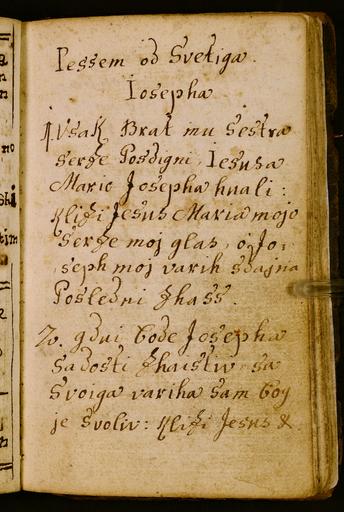 Pessem od Svetiga.
Iosepha
1. Vsak Brat inu Sestra
Serze Posdigni, Iesusa
Mario Josepha hvali:
klizi Jesus Maria mojo
Serze moj glas, o Jo,
seph moj varih sdajna
Posledni zhass.
2. gdui bode Josepha
Sadosti zhaistiu, sa
Svoiga variha sam bog
je svoliv: klizi Jesus &